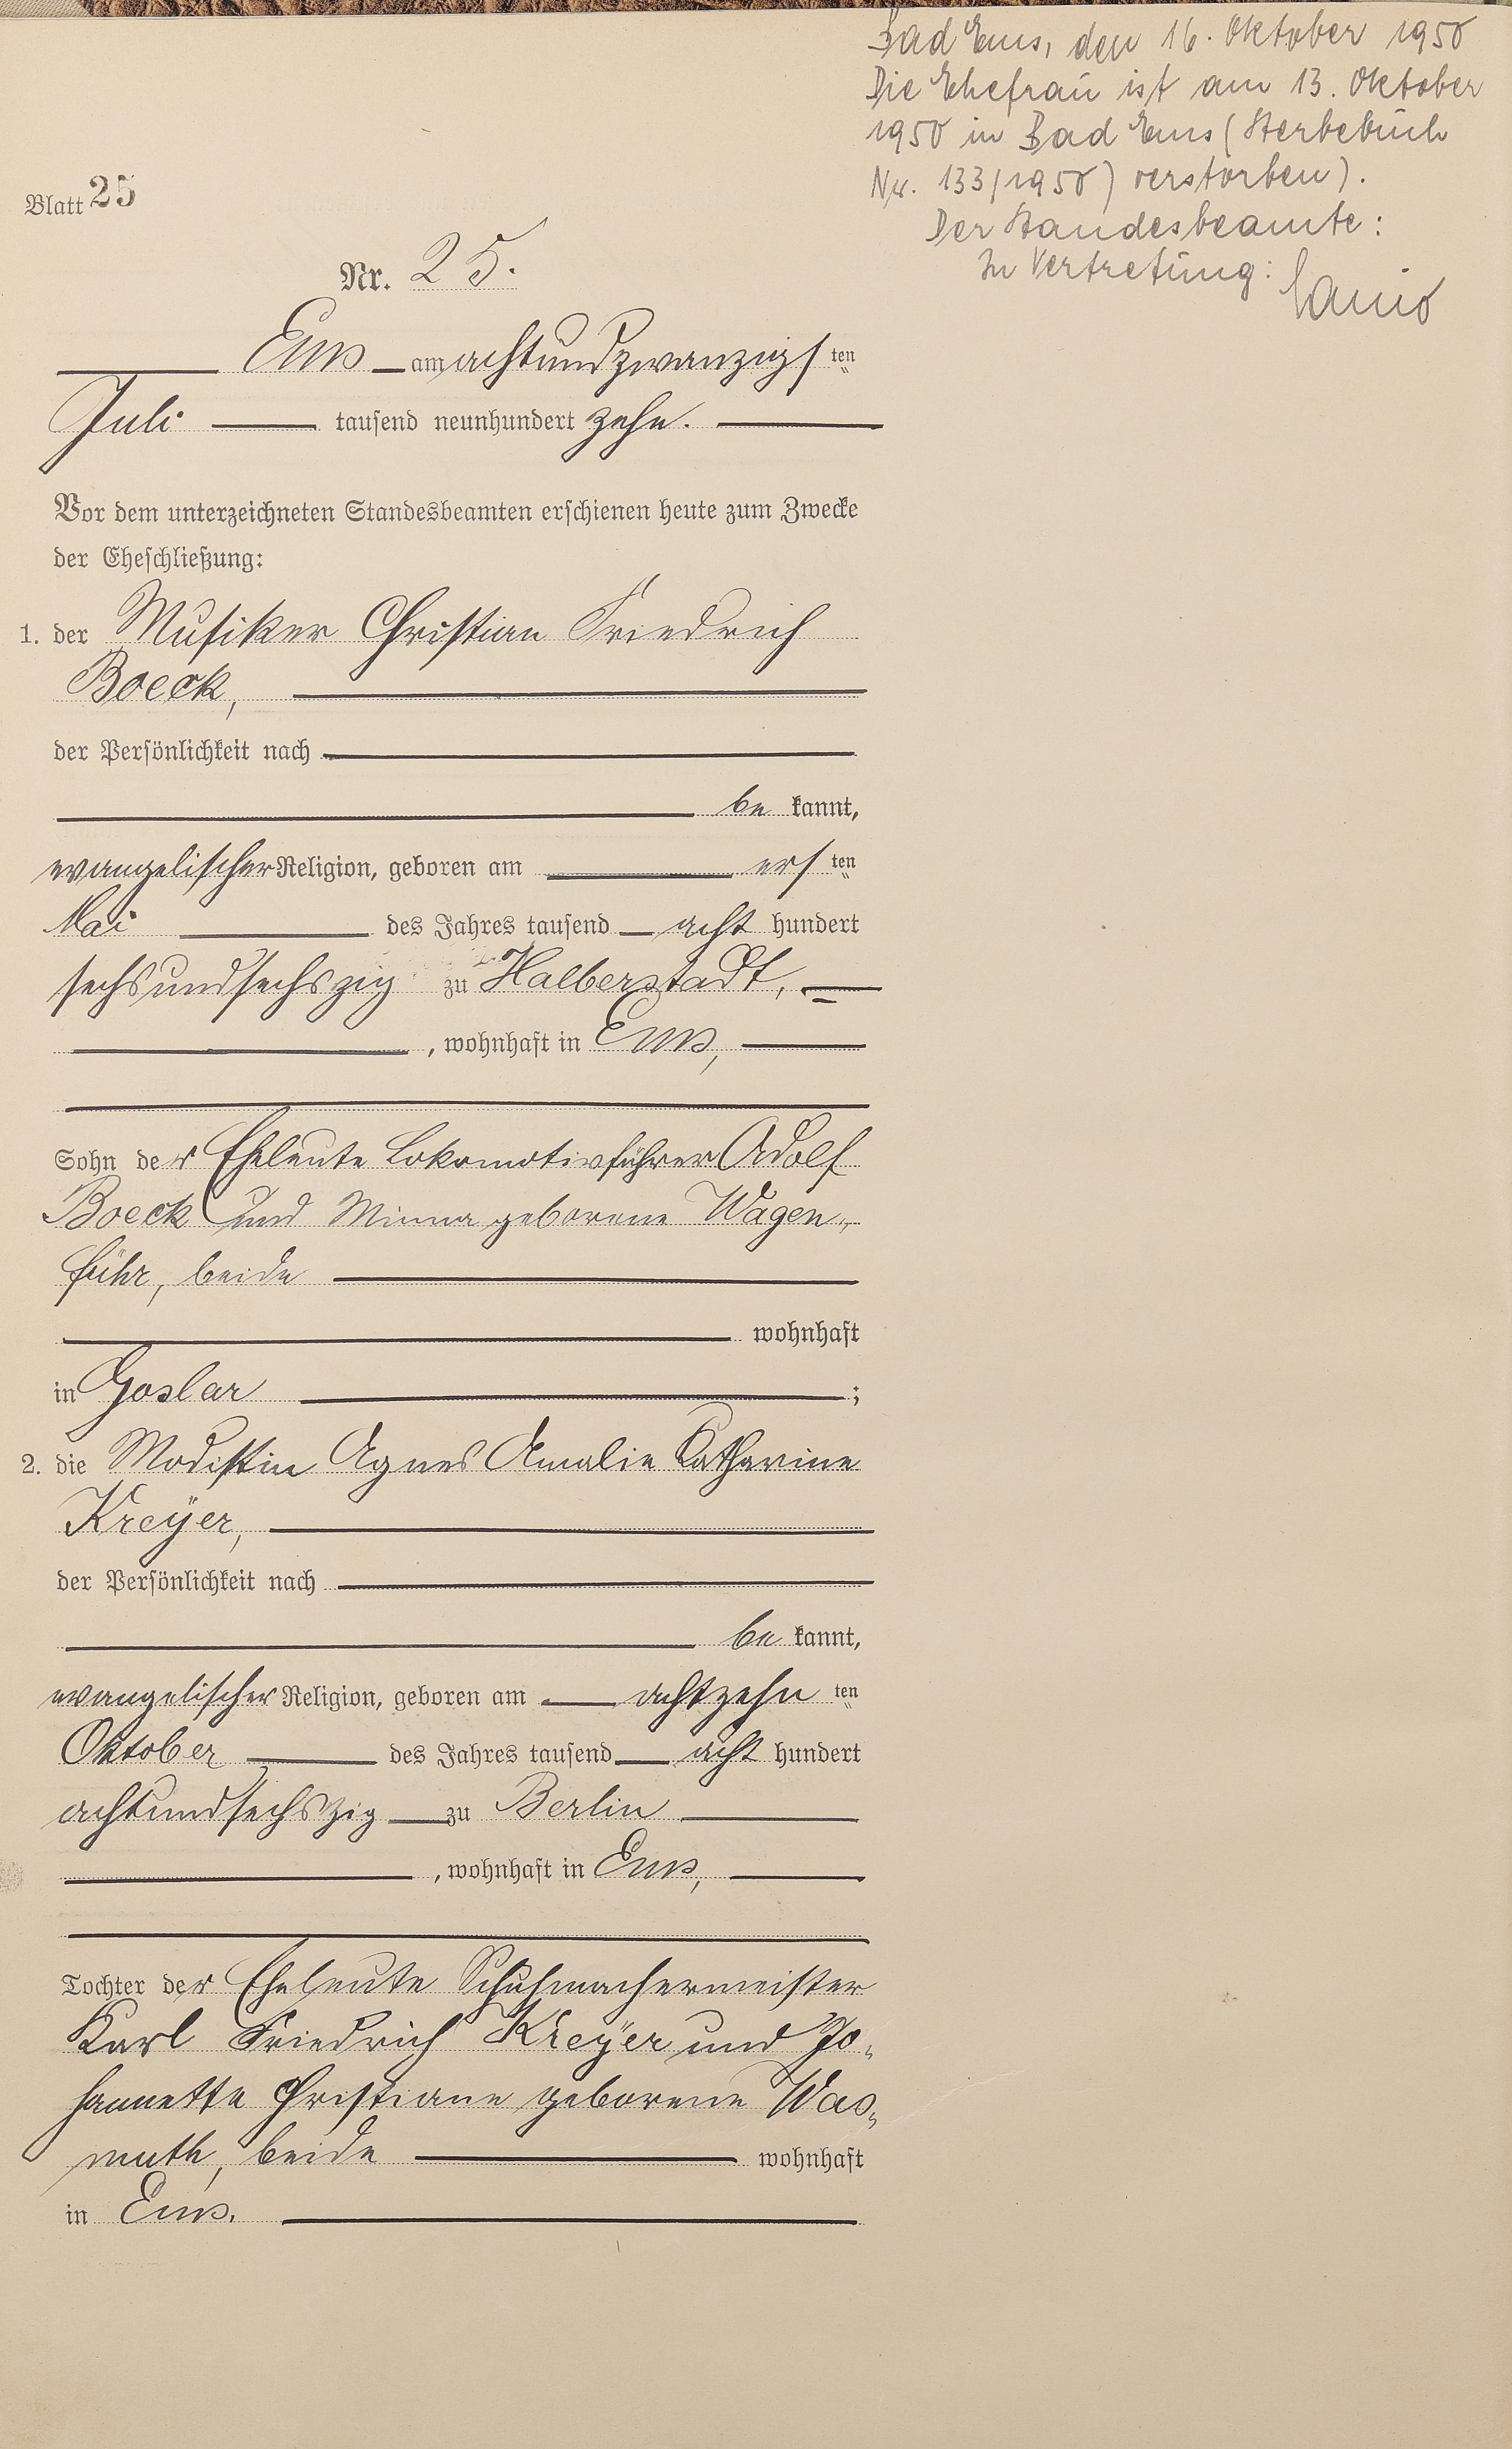 Bad Ems, den 16. Oktober 1950
Die Ehefrau ist am 13. Oktober
1950 in Bad Ems (Sterbebuch
Nr. 133/1950) verstorben).
Der Standesbeamte:
In Vertretung:
Blatt 25
Nr. 25.
Ems am achtundzwanzigsten
Juli tausend neunhundert zehn.
Vor dem unterzeichneten Standesbeamten erschienen heute zum Zwecke
der Eheschließung:
1. der Musiker Christian Friedrich
Boeck,
der Persönlichkeit nach
be kannt,
evangelischer Religion, geboren am ersten
Mai des Jahres tausend acht hundert
sechsundsechszig zu Halberstadt,
, wohnhaft in Ems,
Sohn der Eheleute Lokomotivführer Adolf
Boeck und Minna geborene Wagen-
führ, beide
wohnhaft
in Goslar ;
2. die Modistin Agnes Amalie Katharine
Kreÿer,
der Persönlichkeit nach
be kannt,
evangelischer Religion, geboren am achtzehnten
Oktober des Jahres tausend acht hundert
achtundsechszig zu Berlin
, wohnhaft in Ems,
Tochter der Eheleute Schuhmachermeister
Karl Friedrich Kreÿer und Jo-
hannette Christiane geborene Was-
muth, beide wohnhaft
in Ems.